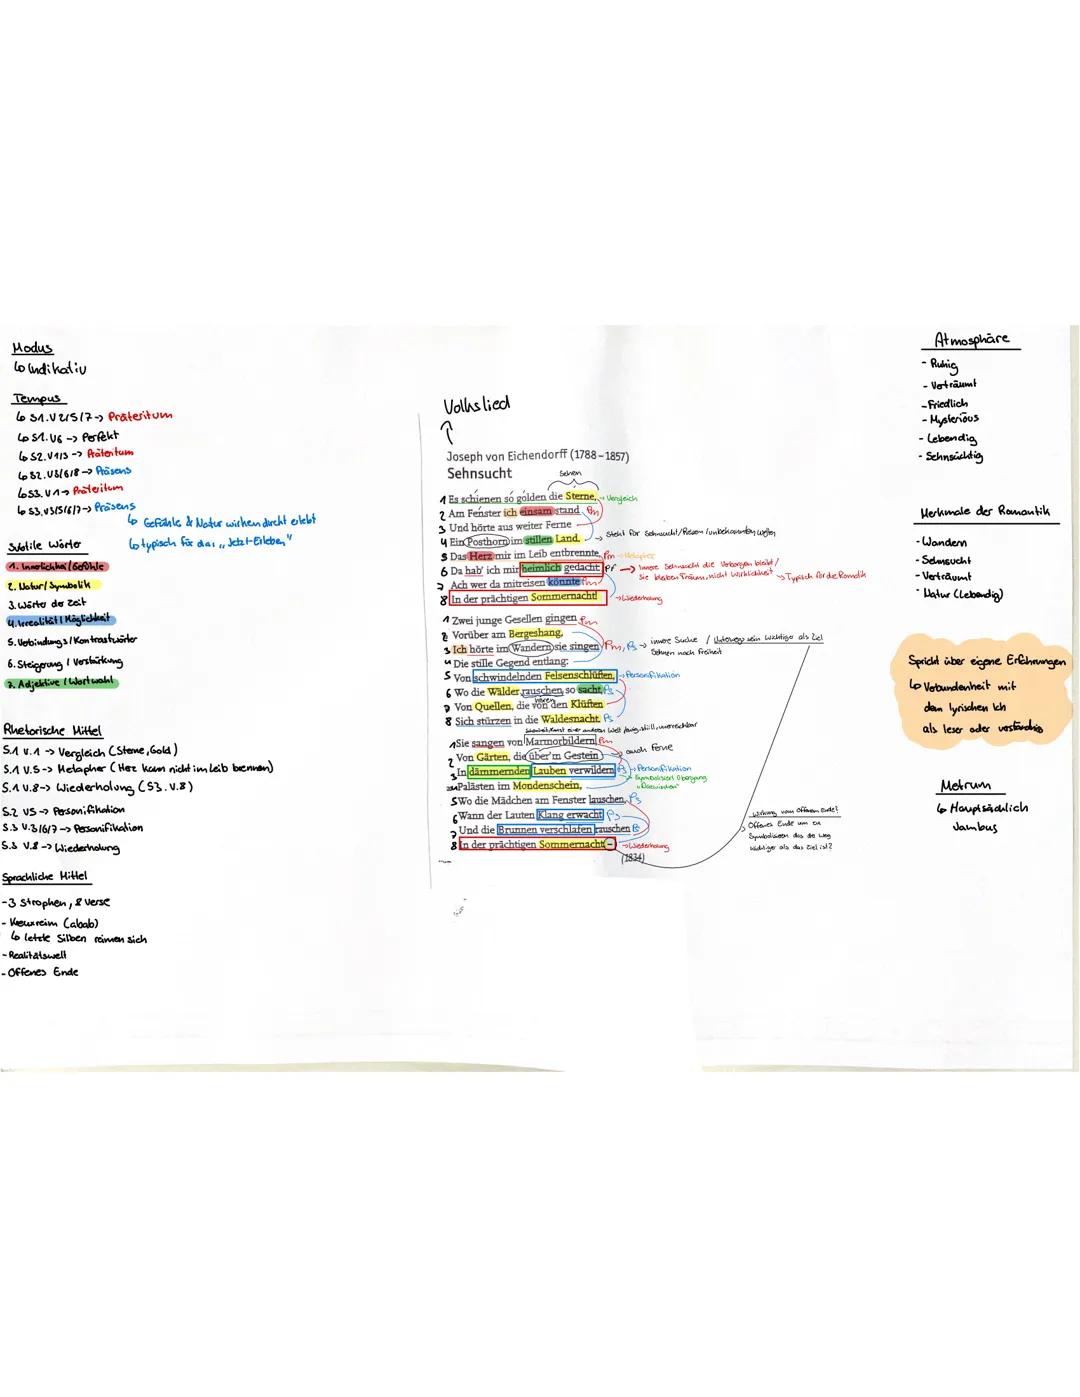 Modus
↳ Indikativ
Tempus
↳ S1.V2/5/7 -> Präteritum
↳ S1.V6 -> Perfekt
↳ S2.V1/3 -> Präteritum
↳ S2.V3/6/8 -> Präsens
↳ S3.V1 -> Präteritum
↳ S3.V3/5/6/7 -> Präsens
↳ Gefühle & Natur wirken direkt erlebt
↳ typisch für das „Jetzt-Erleben"
Subtile Wörter
1. Innerlichkei/Gefühle
2. Natur/Symbolik
3. Wörter der Zeit
4. Irrealität/Möglichkeit
5. Verbindungs/Kontrastwörter
6. Steigerung/Verstärkung
7. Adjektive/Wortwahl
Rhetorische Mittel
S.1 V.1 -> Vergleich (Sterne, Gold)
S.1 V.5 -> Metapher (Herz kann nicht im Leib brennen)
S.1 V.8 -> Wiederholung (S3. V.8)
S.2 V5 -> Personifikation
S.3 V.3/6/7 -> Personifikation
S.3 V.8 -> Wiederholung
Sprachliche Mittel
- 3 Strophen, 8 Verse
- Kreuzreim (abab)
↳ letzte Silben reimen sich
- Realitätswelt
- Offenes Ende
Volkslied
Joseph von Eichendorff (1788–1857)
Sehnsucht
Sehen
1 Es schienen so golden die Sterne, -> Vergleich
2 Am Fenster ich einsam stand Pm
3 Und hörte aus weiter Ferne
4 Ein Posthorn im stillen Land. -> Steht für Sehnsucht/Reisen/unbekannten
5 Das Herz mir im Leib entbrennte, Pm -> Metapher
6 Da hab' ich mir heimlich gedacht: Pf -> Innere Sehnsucht die Verborgen bleibt/
Sie bleiben Traum, nicht Wirklichkeit -> Typisch für die Romatik
7 Ach wer da mitreisen könnte Pm
8 In der prächtigen Sommernacht! -> Wiederholung
1 Zwei junge Gesellen gingen Pm
2 Vorüber am Bergeshang,
3 Ich hörte im Wandern sie singen Pm, Ps -> innere Suche / Unterwegs sein wichtiger als Ziel
Sehnen nach Freiheit
4 Die stille Gegend entlang:
5 Von schwindelnden Felsenschlüften, -> Personifikation
6 Wo die Wälder rauschen so sacht, Ps
hören
7 Von Quellen, die von den Klüften
8 Sich stürzen in die Waldesnacht. Ps
1 Sie sangen von Marmorbildern, Pm
2 Von Gärten, die über'm Gestein -> auch Ferne
3 In dämmernden Lauben verwildern, Ps -> Personifikation
-> Symbolisiert Übergang
4 Palästen im Mondenschein,
5 Wo die Mädchen am Fenster lauschen, Ps
6 Wann der Lauten Klang erwacht Ps
7 Und die Brunnen verschlafen rauschen Ps
8 In der prächtigen Sommernacht. – -> Wiederholung
(1834)
Wirkung vom offenen Ende?
Offenes Ende um zu
Symbolisieren das de Weg
wichtiger als das Ziel ist?
Atmosphäre
- Ruhig
- Verträumt
- Friedlich
- Mysteriös
- Lebendig
- Sehnsüchtig
Merkmale der Romantik
- Wandern
- Sehnsucht
- Verträumt
- Natur (Lebendig)
Spricht über eigene Erfahrungen
↳ Verbundenheit mit
dem lyrischen Ich
als leser oder verständnis
Metrum
↳ Hauptsächlich
Jambus